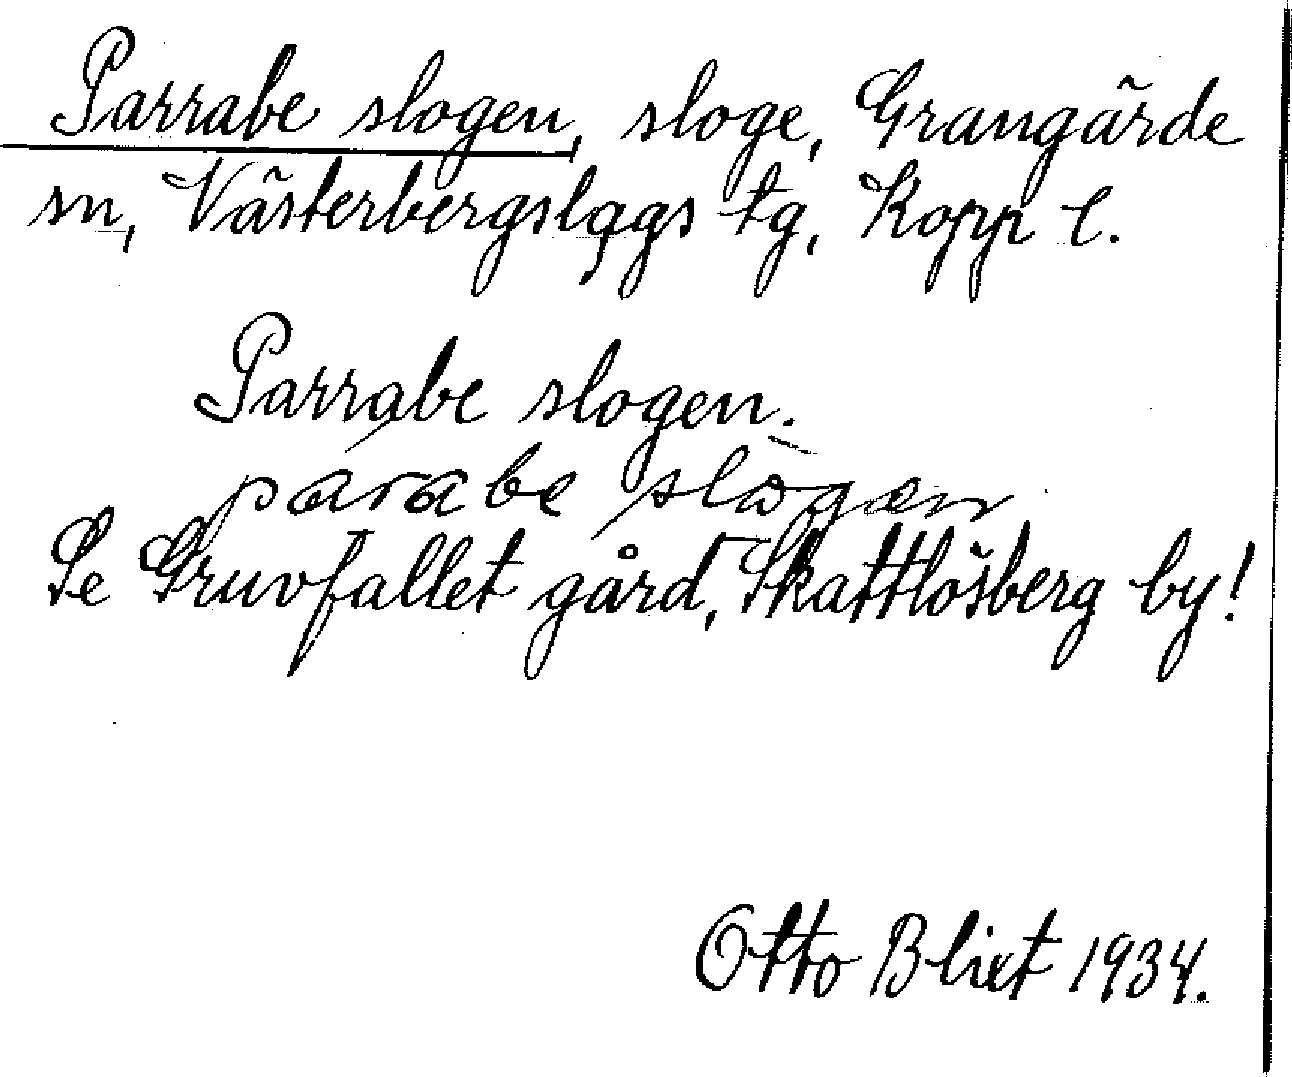 Parrabe slogen, sloge, Grangärde
sn, Västerbergslags tg, Kopp l.
Parrabe slogen.
parabe slogen
Se Gruvfallet gård, Skattlösberg by!
Otto Blixt 1934.